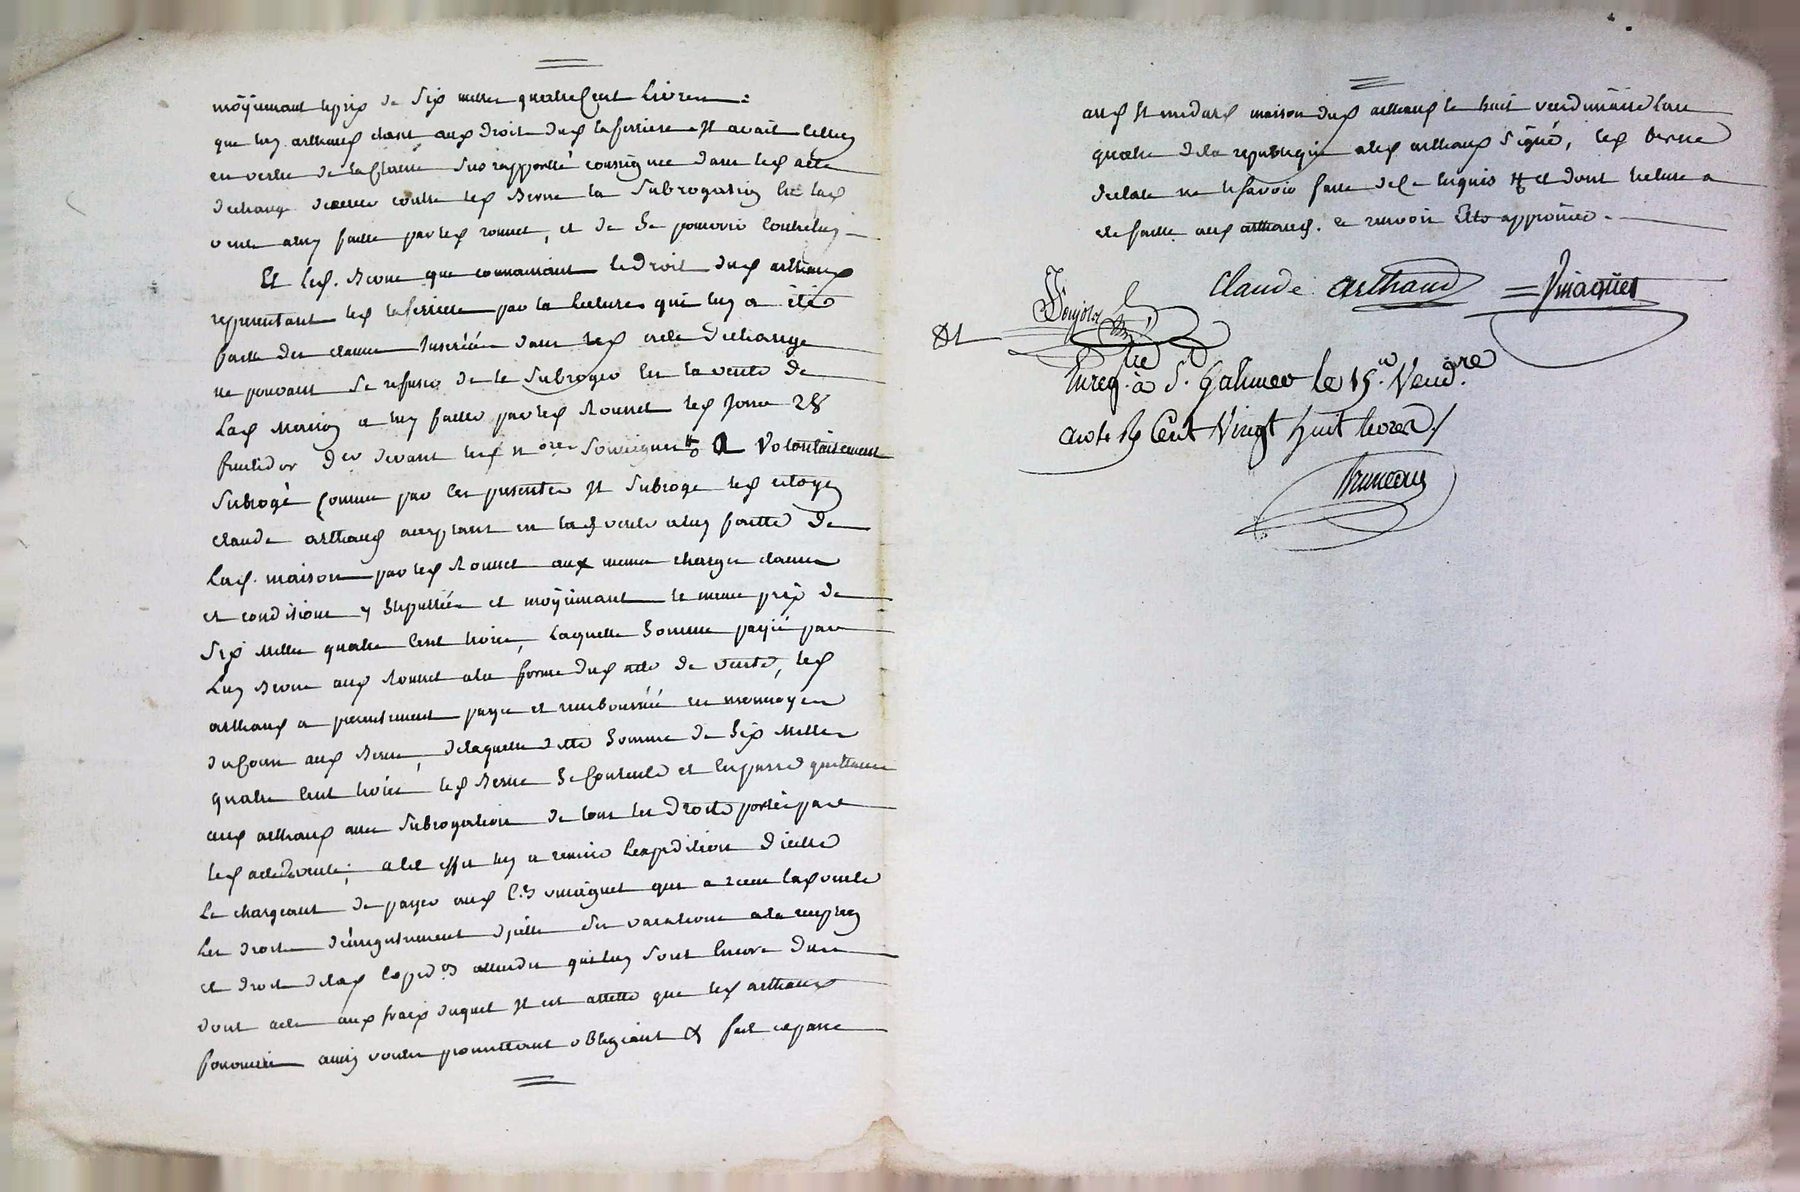 moÿennant le prix de Six mille quatre Cent Livres
que luy arthaud étant aux droits dud laferriere Il avait
en vertu de la Clause Sus rapportée consignée dans led acte
dechange contre led Berne la Subrogation En lad
vente a luy faitte par led ronnet, et de Se pourvoir
Et led. Berne que connaissant le droit dud arthaud
representant led laferriere par la lecture qui luy a été
faitte des clauses Inserées dans led acte dechange
ne pouvant Se refuser de le Subroger En la vente de
Lad Maison a luy faitte par led Ronnet led Jour 28
fructidor der devant led nore Soussigné a Volontairement
Subrogé Comme par Ces presentes Il Subroge led citoyen
claude arthaud acceptant en lad vente a luy faitte de
Lad. maison par led Ronnet aux meme charges clauses
et conditions y Stipullées et moÿennant le meme prix de
Six Mille quatre Cent livres, Laquelle Somme payée par
Luy Berne aud Ronnet a la forme dud acte de vente, led
arthaud a presentement payé et remboursée en monnoye
du Cours aud Berne, de laquelle ditte Somme de Six Mille
quatre Cent livres led Berne Se Contente et En passe quittance
aud arthaud avec Subrogation de tous les Droits portés par
led acte de vente; a cet effet luy a remis Lexpedition dicelle
Le chargeant de payer aud qui a recu lad vente
Les droits denregistrement dicelle Ses vacations
et droit de lad Exped.on attendu quils luy Sont Encore dus
dont acte aux fraix duquel Il est attesté que led arthaud
ainsy voulu promettant obligeant & fait et passé
aud St medard maison dud arthaud le huit vendemiaire Lan
quatre de la republique a led arthaud Signé, led Berne
declaré ne le Savoir faire de Ce Enquis & dont lecture a
ete faitte aud arthaud. et renvoi Etto approuvée.
Claude arthaud = Vinaques
Enreg. à St. Galmer le 15. Vend.re
an 4e Rç Cent Vingt huit livres /